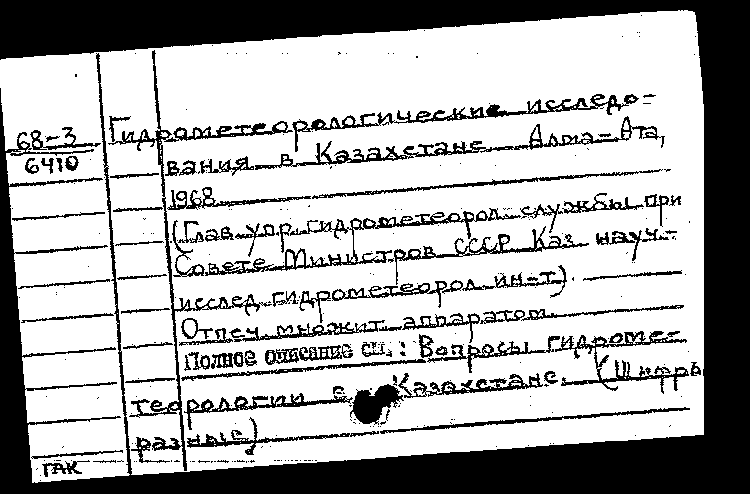 68-3
6410
Гидрометеорологические исследо-
вания в Казахстане. Алма-Ата,
1968
(Глав. упр. гидрометеорол. службы при
Совете Министров СССР Каз. науч.-
исслед. гидрометеорол. ин-т).
Отпеч. множит. аппаратом.
Полное описание см.: Вопросы гидроме-
теорологии в Казахстане. (Шифры
разные)
ГАК